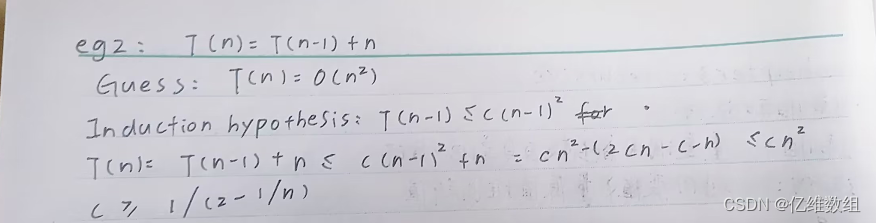 eg2: T(n) = T(n-1) + n
Guess: T(n) = O(n²)
Induction hypothesis: T(n-1) ≤ c(n-1)² for
T(n) = T(n-1) + n ≤ c(n-1)² + n = cn² - (2cn - c - n) ≤ cn²
c ≥ 1/(2 - 1/n)
CSDN @亿维数组